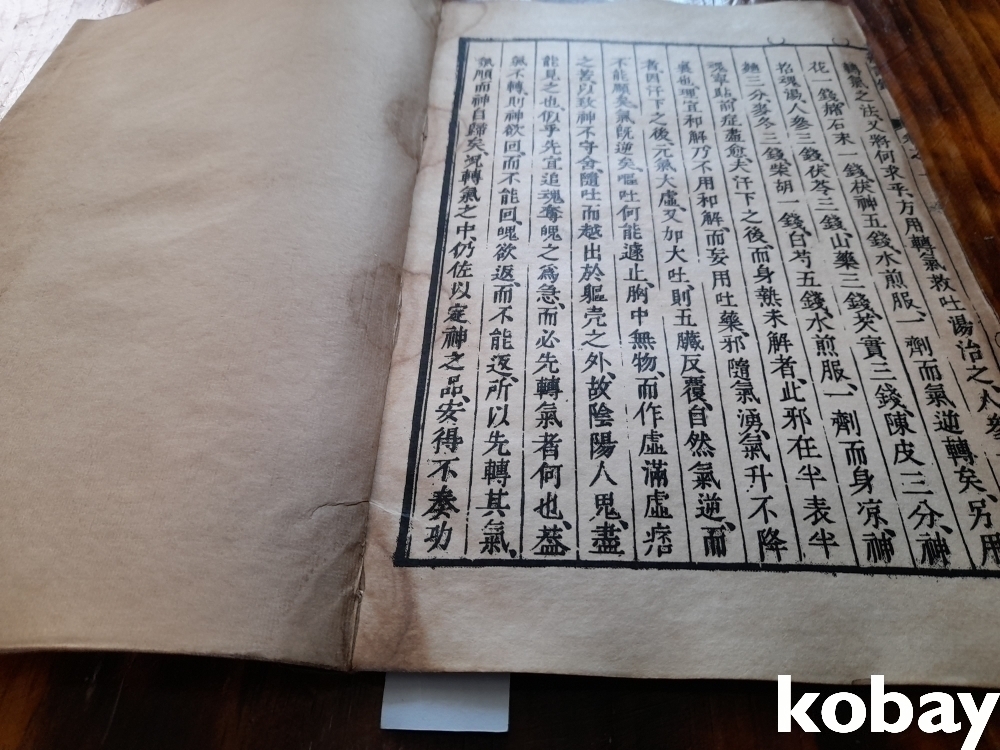 轉氣之法又將何求乎方用轉氣救吐湯治之人參
花一錢赭石末一錢茯神五錢水煎服一劑而氣逆轉矣另用
招魂湯人參三錢茯苓三錢山藥三錢芡實三錢陳皮三分神
麯三分麥冬三錢柴胡一錢白芍五錢水煎服一劑而身凉神
魂寧貼前症盡愈夫汗下之後而身熱未解者此邪在半表半
裏也理宜和解乃不用和解而妄用吐藥邪隨氣湧氣升不降
者因汗下之後元氣大虛又加大吐則五臟反覆自然氣逆而
不能順矣氣旣逆矣嘔吐何能遽止胸中無物而作虛滿虛痞
之苦以致神不守舍隨吐而越出於軀壳之外故陰陽人鬼盡
能見之也似乎先宜追魂奪魄之爲急而必先轉氣者何也葢
氣不轉則神欲回而不能回魄欲返而不能返所以先轉其氣
氣順而神自歸矣况轉氣之中仍佐以定神之品安得不奏功
kobay